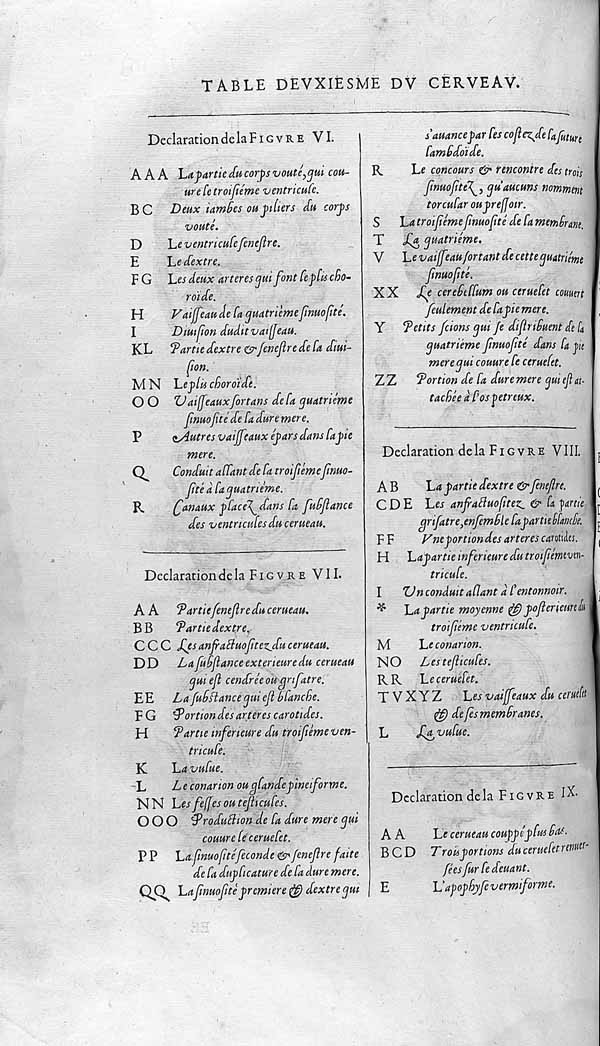 TABLE DEVXIESME DV CERVEAV.
Declaration de la FIGVRE VI.
A A A La partie du corps vouté, qui cou-
ure le troisiéme ventricule.
B C Deux iambes ou piliers du corps
vouté.
D Le ventricule senestre.
E Le dextre.
F G Les deux arteres qui font le plis cho-
roïde.
H Vaisseau de la quatriéme sinuosité.
I Diuision dudit vaisseau.
KL Partie dextre & senestre de la diui-
sion.
M N Le plis choroïde.
O O Vaisseaux sortans de la quatriéme
sinuosité de la dure mere.
P Autres vaisseaux épars dans la pie
mere.
Q Conduit allant de la troisiéme sinuo-
sité à la quatriéme.
R Canaux placez dans la substance
des ventricules du cerueau.
Declaration de la FIGVRE VII.
A A Partie senestre du cerueau.
B B Partie dextre.
C C C Les anfractuositez du cerueau.
D D La substance exterieure du cerueau
qui est cendrée ou grisatre.
E E La substance qui est blanche.
F G Portion des arteres carotides.
H Partie inferieure du troisiéme ven-
tricule.
K La vulue.
L Le conarion ou glande pineiforme.
N N Les fesses ou testicules.
O O O Production de la dure mere qui
couure le ceruelet.
P P La sinuosité seconde & senestre faite
de la duplicature de la dure mere.
QQ La sinuosité premiere & dextre qui
s'auance par les costez de la suture
lambdoïde.
R Le concours & rencontre des trois
sinuositez, qu'aucuns nomment
torcular ou pressoir.
S La troisiéme sinuosité de la membrane.
T La quatriéme.
V Le vaisseau sortant de cette quatriéme
sinuosité.
X X Le cerebellum ou ceruelet couuert
seulement de la pie mere.
Y Petits scions qui se distribuent de la
quatriéme sinuosité dans la pie
mere qui couure le ceruelet.
Z Z Portion de la dure mere qui est at-
tachée à l'os petreux.
Declaration de la FIGVRE VIII.
A B La partie dextre & senestre.
C D E Les anfractuositez & la partie
grisatre, ensemble la partie blanche.
F F Vne portion des arteres carotides.
H La partie inferieure du troisiéme ven-
tricule.
I Vn conduit allant à l'entonnoir.
* La partie moyenne & posterieure du
troisiéme ventricule.
M Le conarion.
NO Les testicules.
R R Le ceruelet.
T V X Y Z Les vaisseaux du ceruelet
& de ses membranes.
L La vulue.
Declaration de la FIGVRE IX.
A A Le cerueau couppé plus bas.
B C D Trois portions du ceruelet renuer-
sées sur le deuant.
E L'apophyse vermiforme.